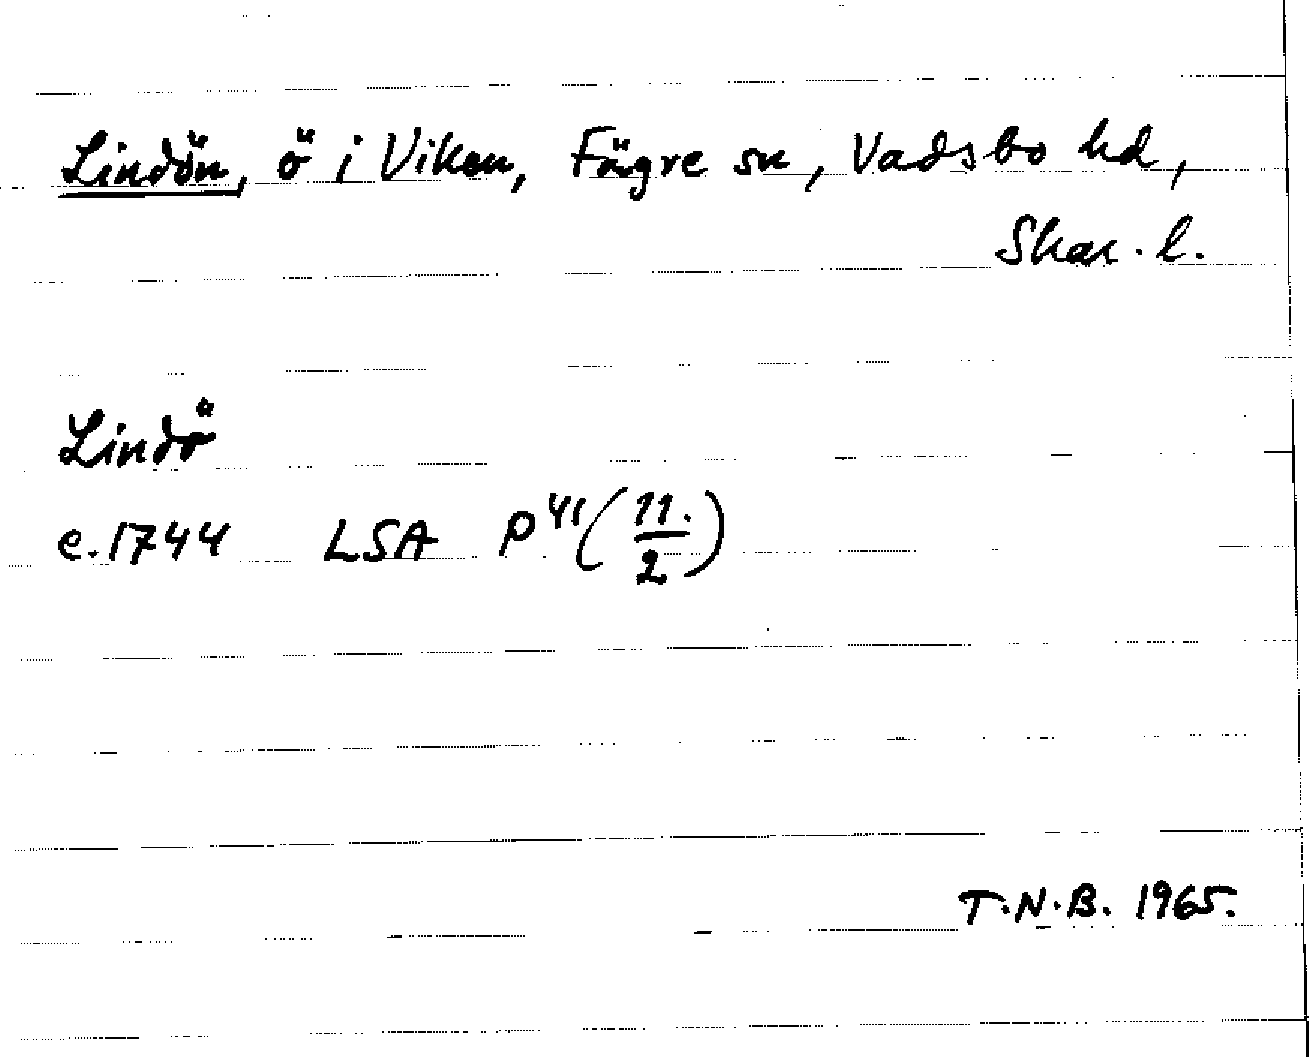 Lindön, ö i Viken, Fägre sn, Vadsbo hd,
Skar. l.
Lindö
c. 1744 LSA P41 (11./2)
T.N.B. 1965.